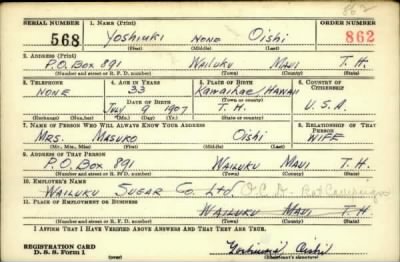 862
SERIAL NUMBER 1. NAME (Print) ORDER NUMBER
568 Yoshiuki NONE Oishi 862
(First) (Middle) (Last)
2. ADDRESS (Print)
P.O. Box 891 WAILUKU MAUI T. H.
(Number and street or R. F. D. number) (Town) (County) (State)
3. TELEPHONE 4. AGE IN YEARS 5. PLACE OF BIRTH 6. COUNTRY OF CITIZENSHIP
NONE 33 Kawaihae, HAWAII
DATE OF BIRTH (Town or county)
JULY 9 1907 T. H. U.S.A.
(Exchange) (No.) (Mo.) (Day) (Yr.) (State or country)
7. NAME OF PERSON WHO WILL ALWAYS KNOW YOUR ADDRESS 8. RELATIONSHIP OF THAT PERSON
MRS. MASUKO Oishi WIFE
(Mr., Mrs., Miss) (First) (Middle) (Last)
9. ADDRESS OF THAT PERSON
P.O. Box 891 WAILUKU MAUI T.H.
(Number and street or R. F. D. number) (Town) (County) (State)
10. EMPLOYER'S NAME
WAILUKU SUGAR Co. Ltd
11. PLACE OF EMPLOYMENT OR BUSINESS
WAILUKU MAUI T.H
(Number and street or R. F. D. number) (Town) (County) (State)
I AFFIRM THAT I HAVE VERIFIED ABOVE ANSWERS AND THAT THEY ARE TRUE.
REGISTRATION CARD
D. S. S. Form 1 Oishi
(Registrant's signature)